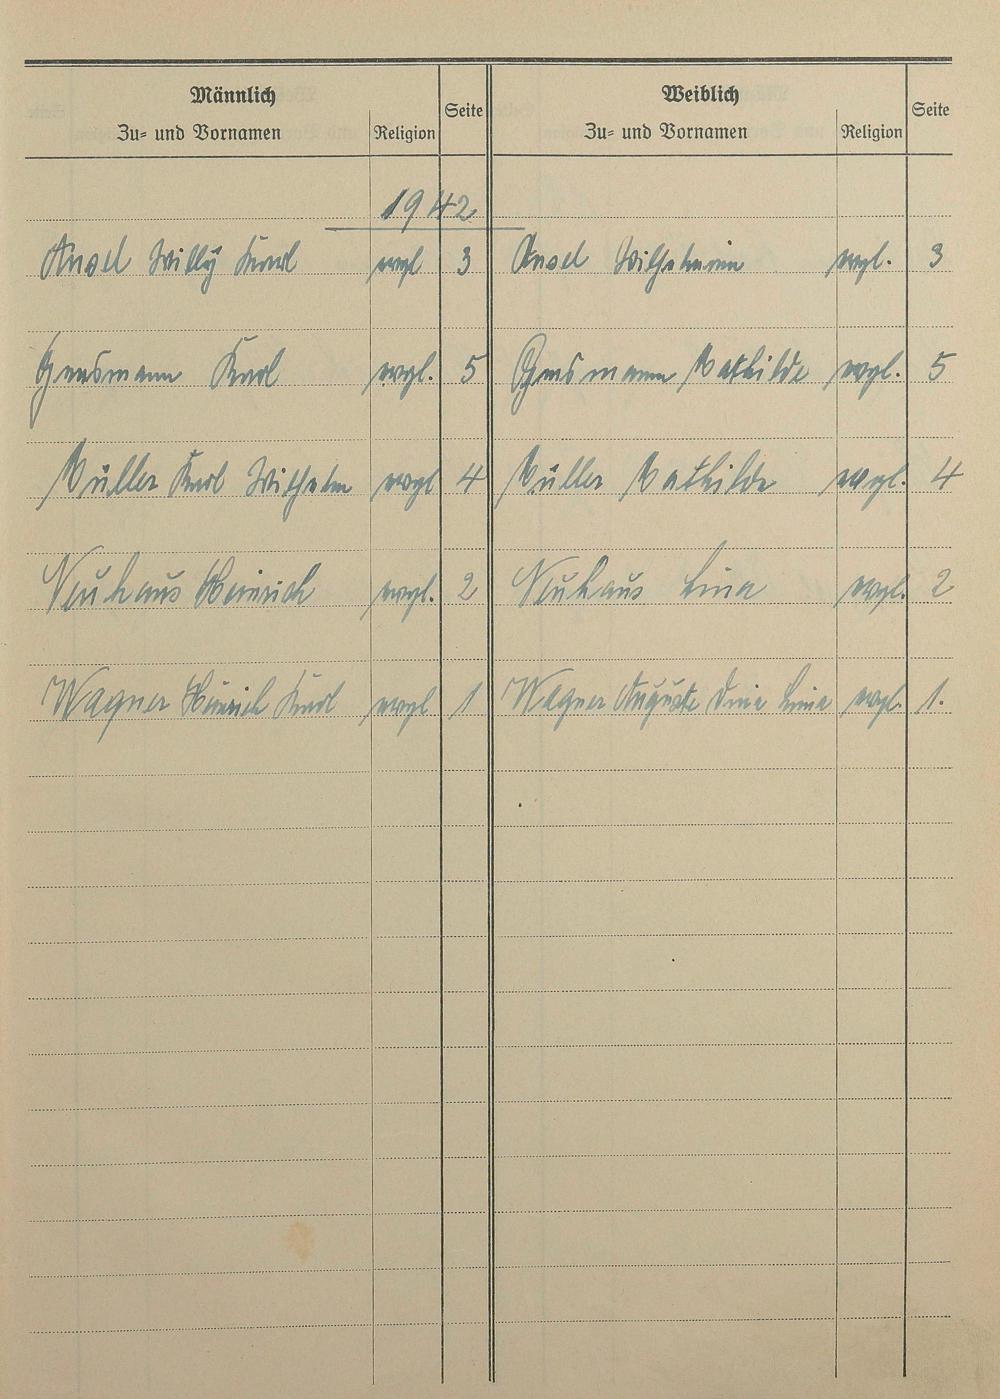 Männlich Weiblich
Zu= und Vornamen Religion Seite Zu= und Vornamen Religion Seite
1942
Ansel Willy Karl evgl 3 Ansel Wilhelmine evgl. 3
Karl evgl. 5 Mathilde evgl. 5
Müller Karl Wilhelm evgl 4 Müller Mathilde evgl. 4
Neuhaus Heinrich evgl. 2 Neuhaus Lina evgl. 2
Wagner Heinrich Karl evgl 1 Wagner Auguste Lina evgl. 1.